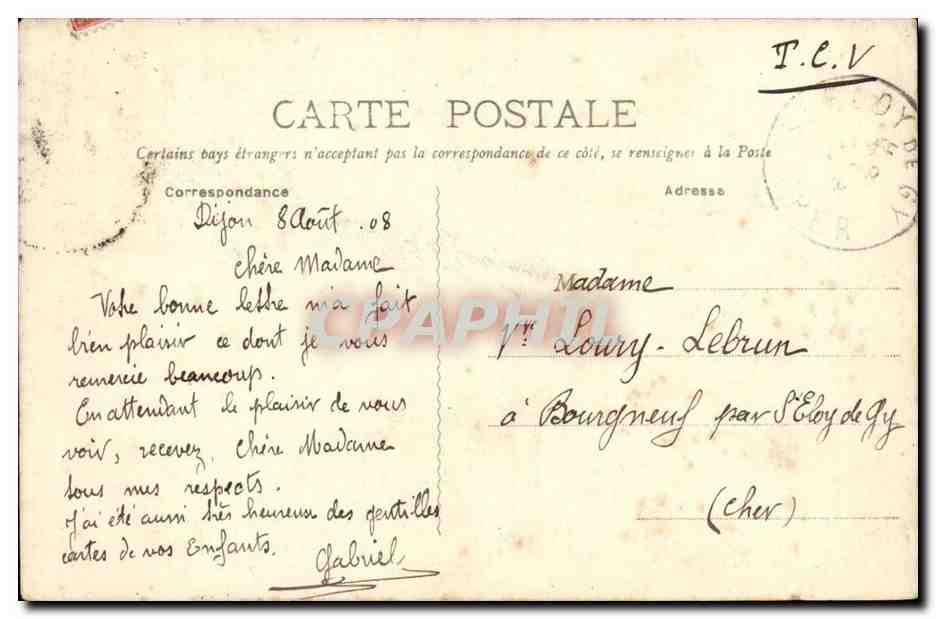 T.C.V
CARTE POSTALE
Certains pays étrangers n'acceptant pas la correspondance de ce côté, se renseigner à la Poste
Correspondance
Dijon 8 Août . 08
Chère Madame
Votre bonne lettre m'a fait
bien plaisir ce dont je vous
remercie beaucoup.
En attendant le plaisir de vous
voir, recevez, Chère Madame
tous mes respects.
J'ai été aussi très heureux des gentilles
cartes de vos Enfants.
Gabriel
Adresse
Madame
Vve Loury - Lebrun
à Bourgneuf par St Eloy de Gy
(Cher)
OY DE GY
CPAPHIL